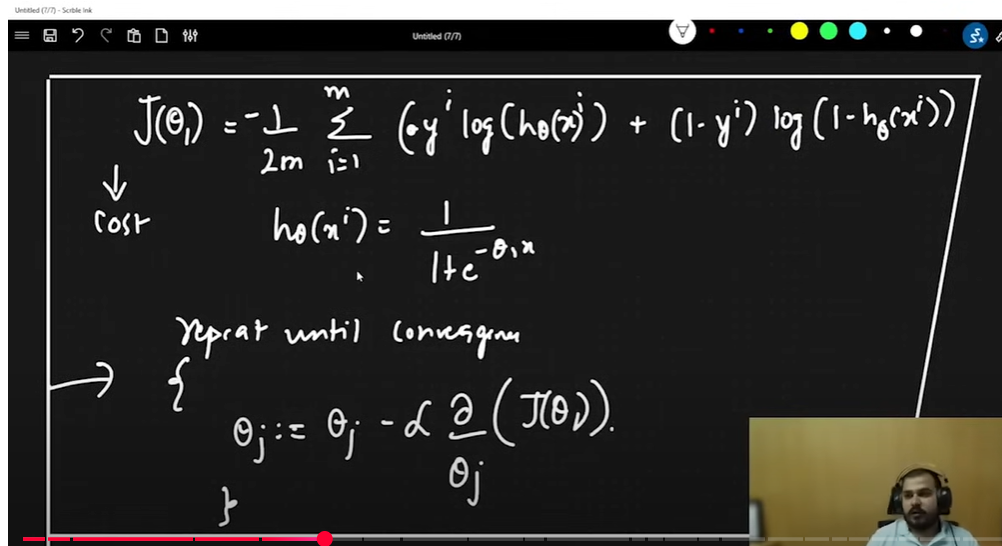 Untitled (7/7) - Scrble Ink
Untitled (7/7)
J(θ₁) = -1/2m Σ_{i=1}^{m} (y^i log(hθ(x)^i) + (1-y^i) log(1-hθ(x^i)))
↓
Cost
hθ(x^i) = 1/(1+e^{-θ₁x})
repeat until convergence
→ {
θj := θj - α ∂/θj (J(θ₁)).
}